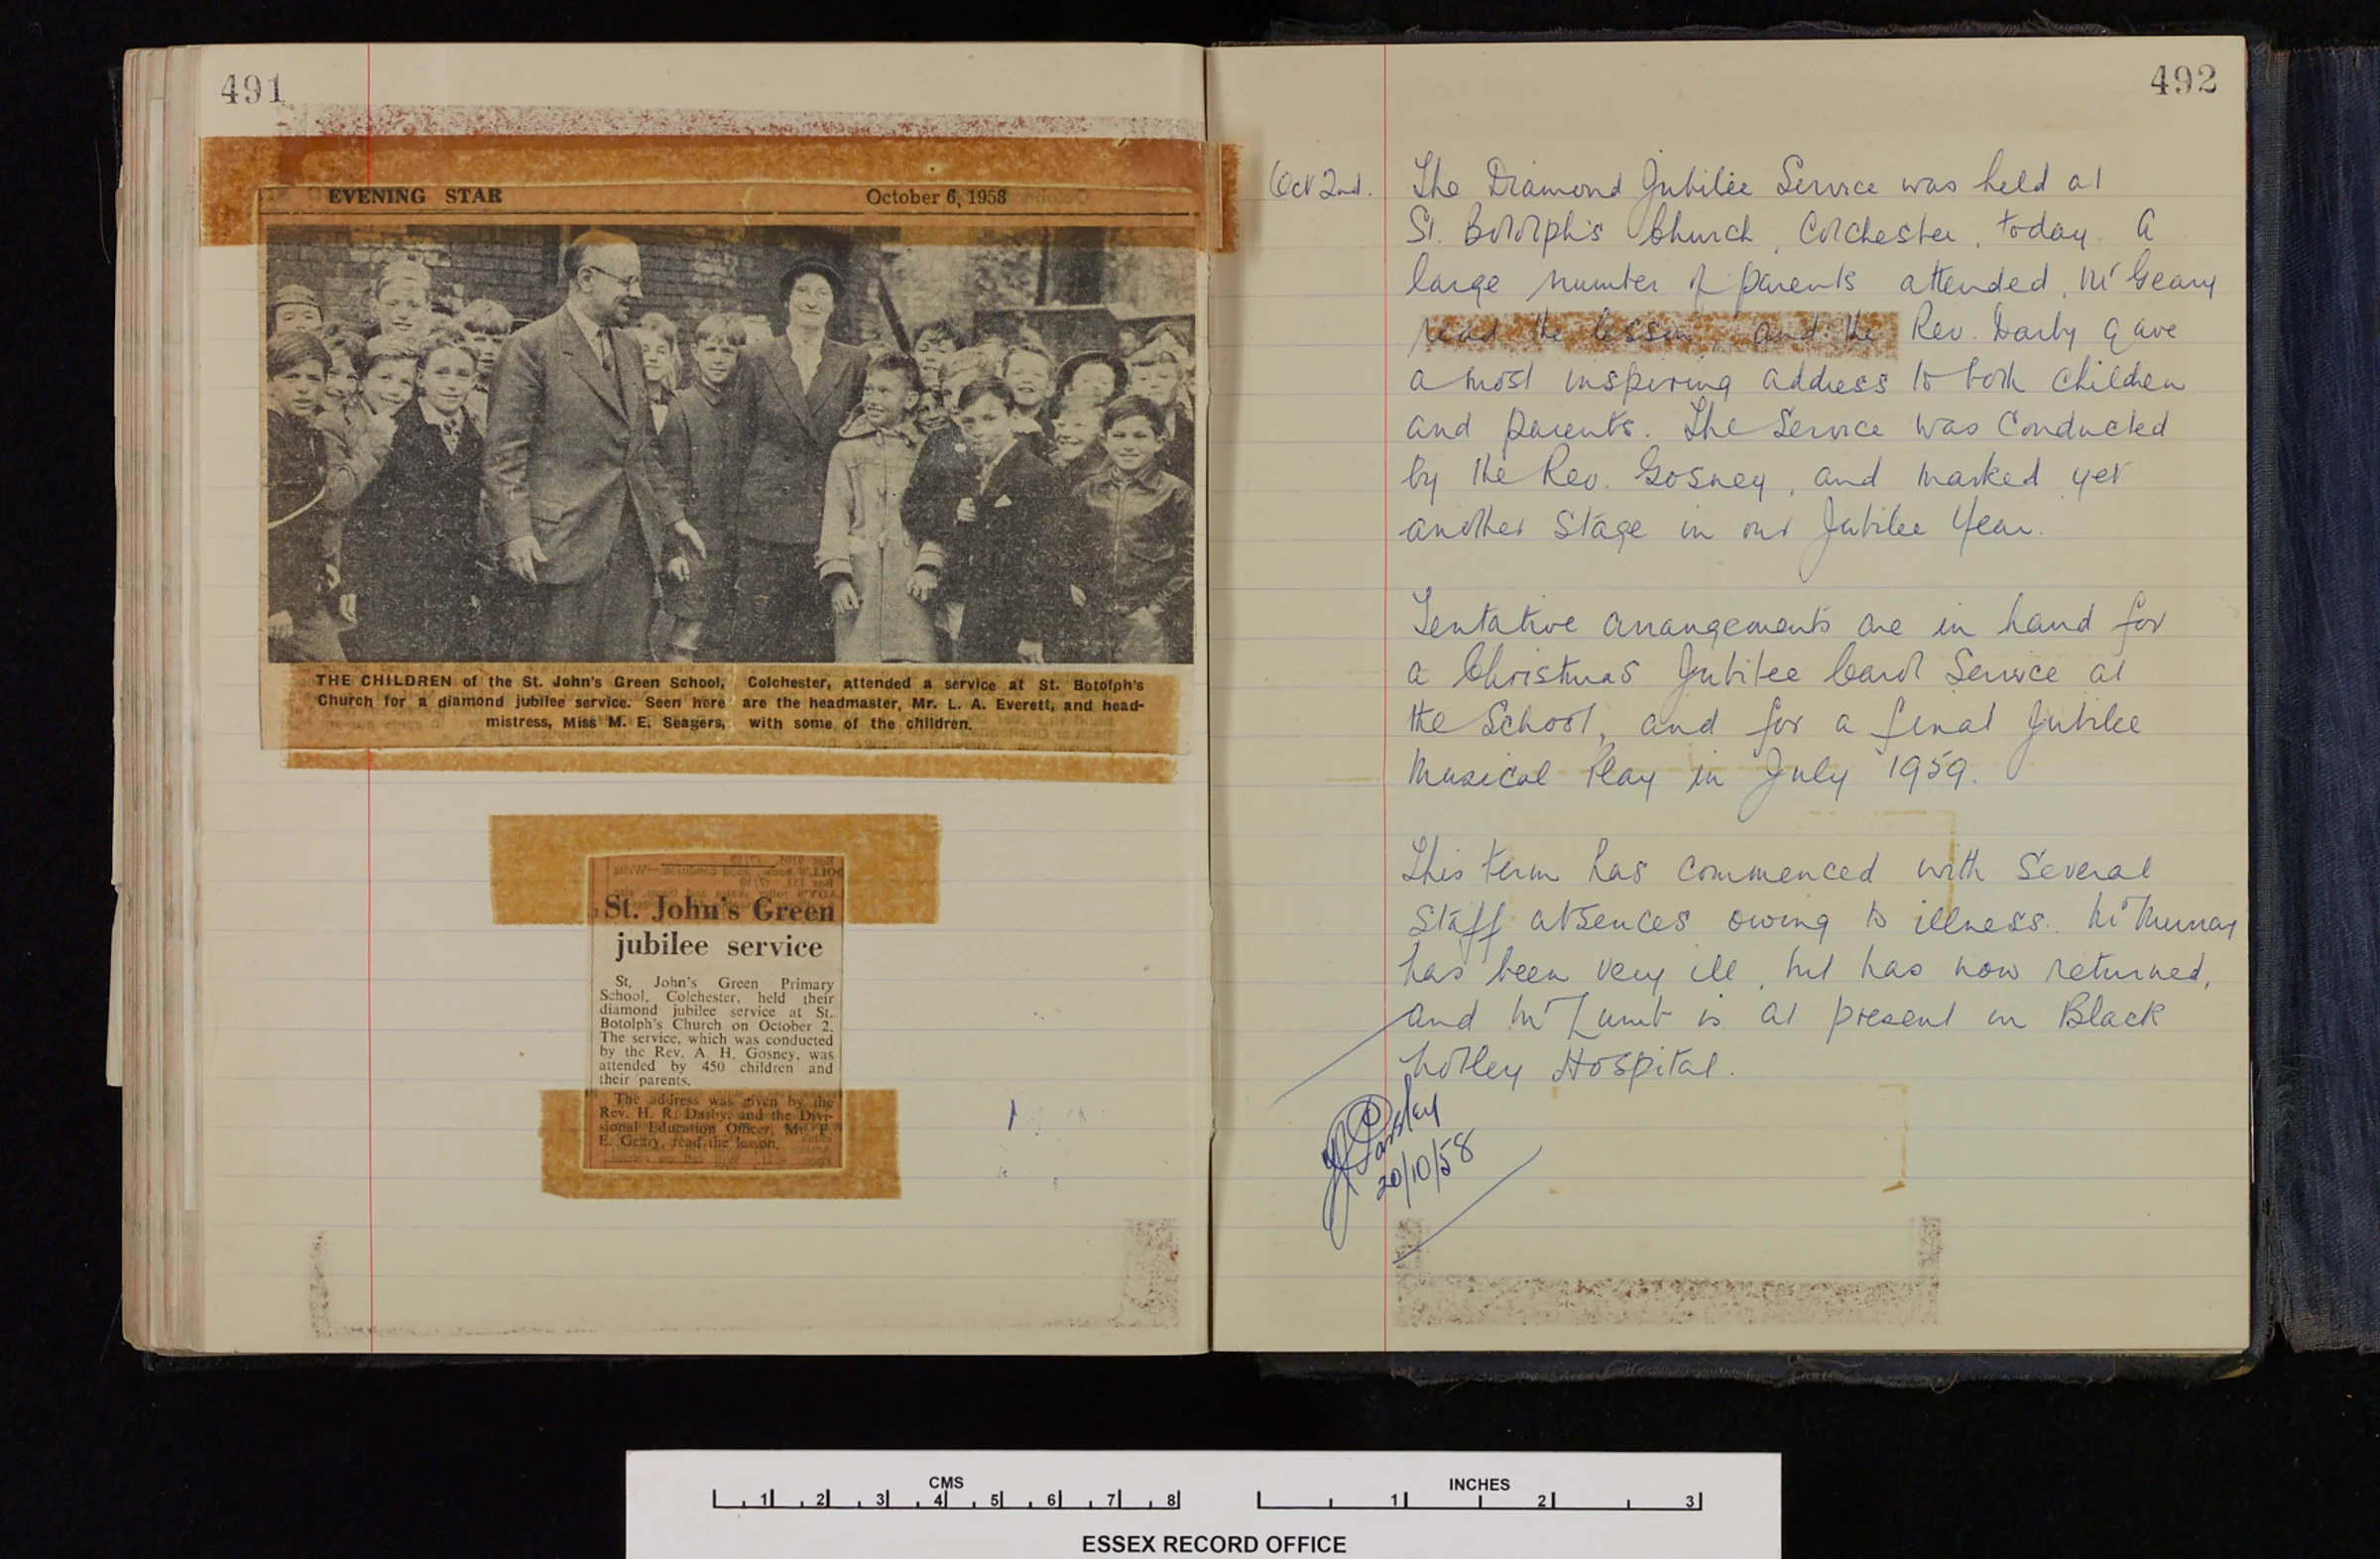 491
EVENING STAR October 6, 1958
THE CHILDREN of the St. John's Green School, Colchester, attended a service at St. Botolph's
Church for a diamond jubilee service. Seen here are the headmaster, Mr. L. A. Everett, and head-
mistress, Miss M. E. Seagers, with some of the children.
St. John's Green
jubilee service
St. John's Green Primary
School, Colchester, held their
diamond jubilee service at St.
Botolph's Church on October 2.
The service, which was conducted
by the Rev. A. H. Gosney, was
attended by 450 children and
their parents.
The address was given by the
Rev. H. R. Darby, and the Divi-
sional Education Officer, Mr. F.
E. Geary, read the lesson.
492
Oct 2nd. The Diamond Jubilee Service was held at
St. Botolph's Church, Colchester, today. A
large number of parents attended, Mr Geary
read the lesson, and the Rev. Darby gave
a most inspiring address to both children
and parents. The Service was conducted
by the Rev. Gosney, and marked yet
another stage in our Jubilee Year.
Tentative arrangements are in hand for
a Christmas Jubilee Carol Service at
the School, and for a final Jubilee
Musical Play in July 1959.
This term has commenced with several
staff absences owing to illness. Mr Murray
has been very ill, but has now returned,
and Mr Lumb is at present in Black
Notley Hospital.
20/10/58
CMS
1 2 3 4 5 6 7 8
INCHES
1 2 3
ESSEX RECORD OFFICE